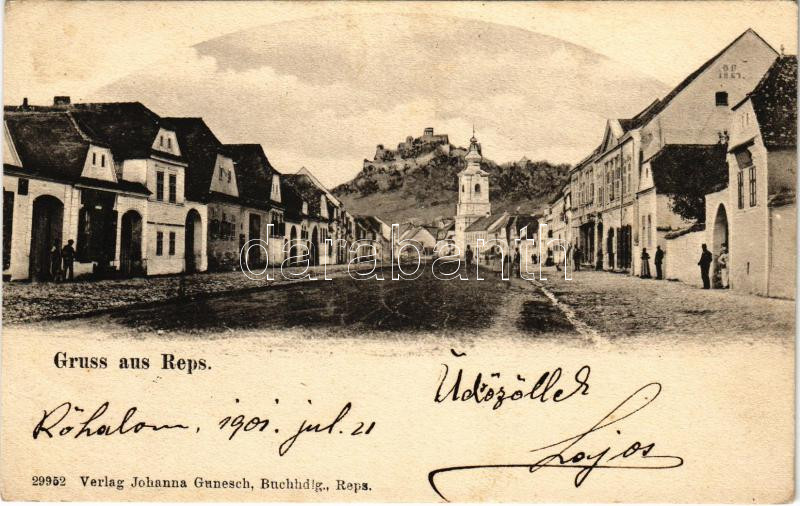 G B
1867.
darabanth
Gruss aus Reps.
Üdvözöllek
Rőhalom, 1901. jul. 21
Lajos
29952 Verlag Johanna Gunesch, Buchhdlg., Reps.